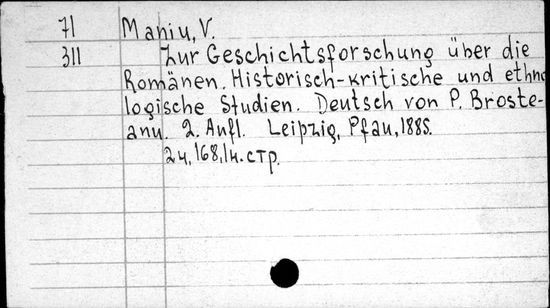 71 Maniu, V.
311 Zur Geschichtsforschung über die
Romänen. Historisch-kritische und ethno
logische Studien. Deutsch von P. Broste-
anu. 2. Aufl. Leipzig, Pfau, 1885.
24, 168, 14. стр.